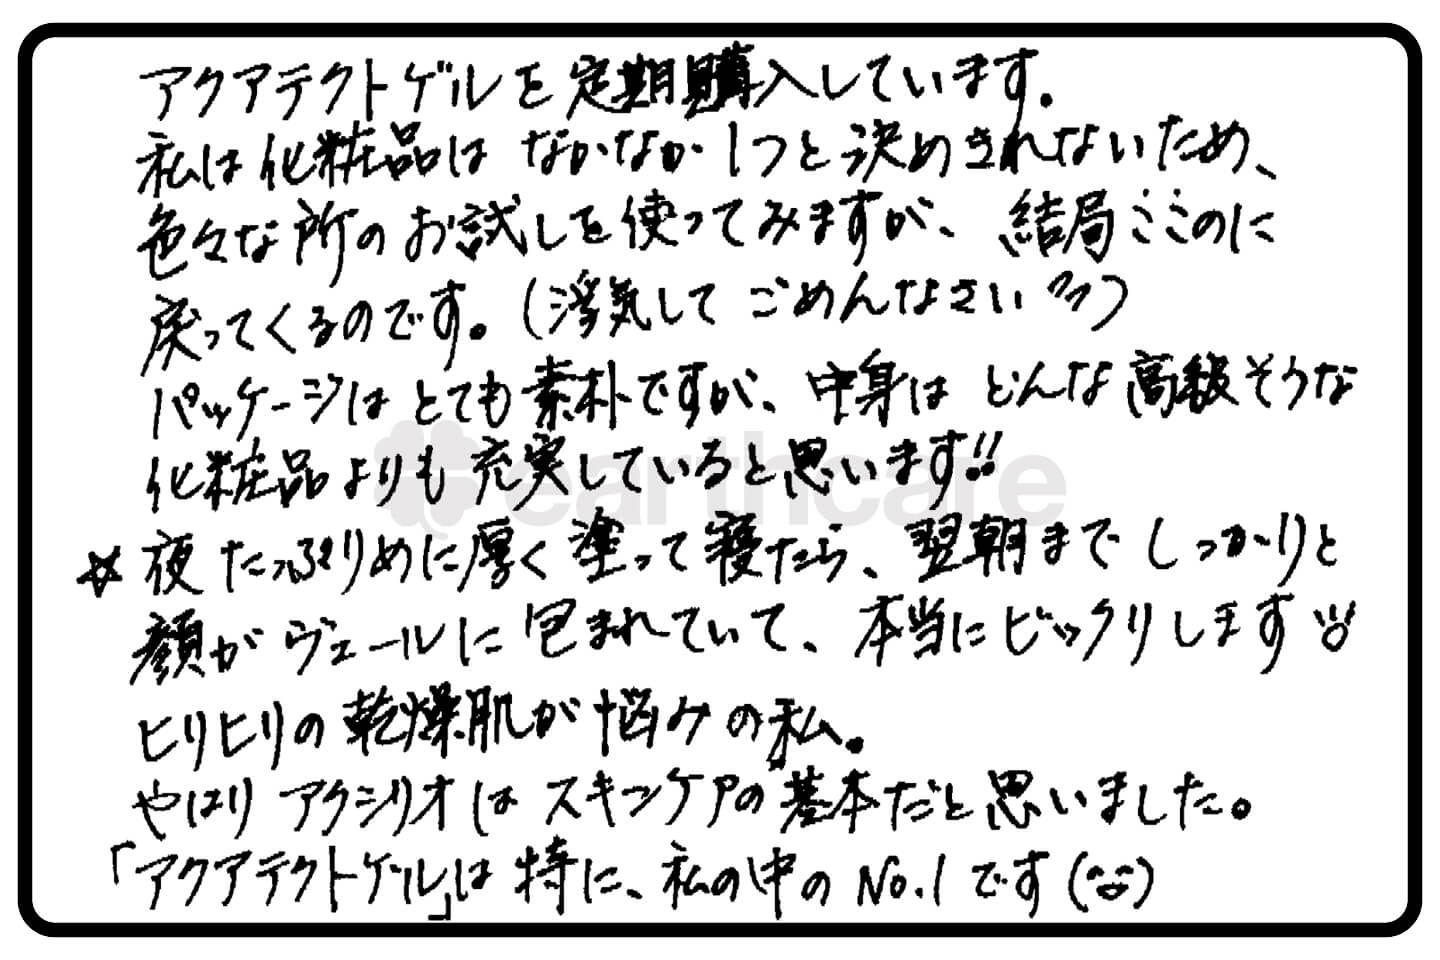 アクアテクトゲルを定期購入しています.
私は化粧品はなかなか1つと決めきれないため、
色々な所のお試しを使ってみますが、結局ここのに
戻ってくるのです。(浮気してごめんなさい
パッケージはとても素朴ですが、中身はどんな高級そうな
化粧品よりも充実していると思います!!
☆夜たっぷりめに厚く塗って寝たら、翌朝までしっかりと
顔がヴェールに包まれていて、本当にビックリします
ヒリヒリの乾燥肌が悩みの私。
やはりアクシリオはスキンケアの基本だと思いました。
「アクアテクトゲル」は特に、私の中のNo.1です
earthcare